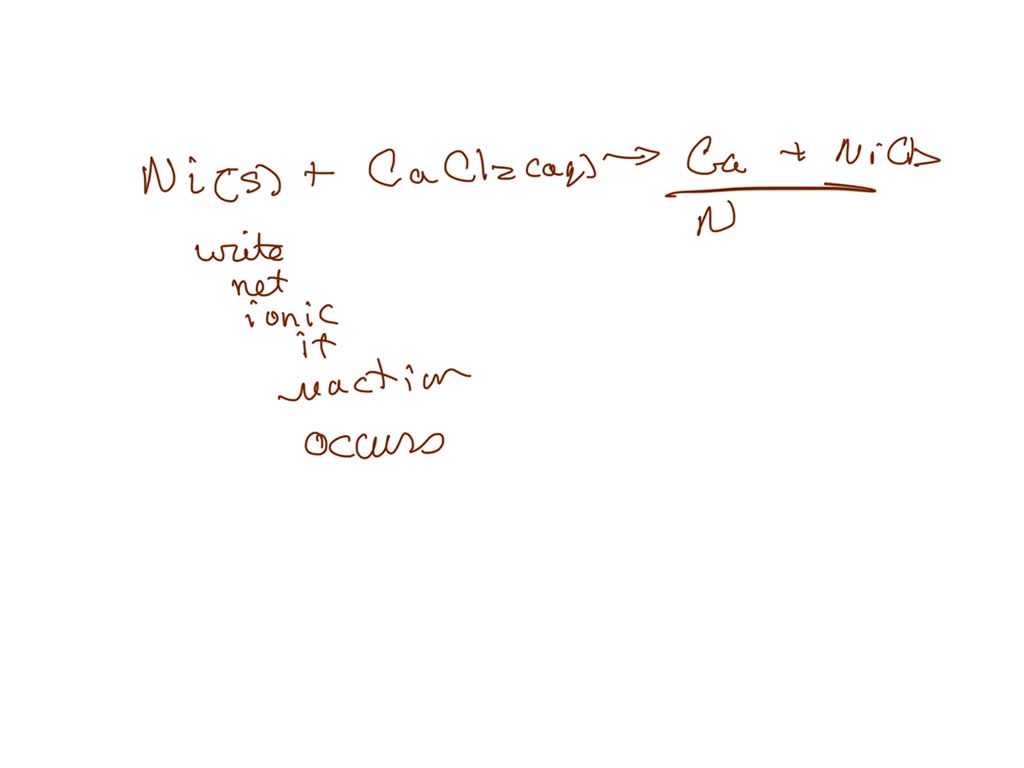 Ni(s) + CaCl2(aq) → Ca + NiCl2
N
write
net
ionic
if
reaction
occurs